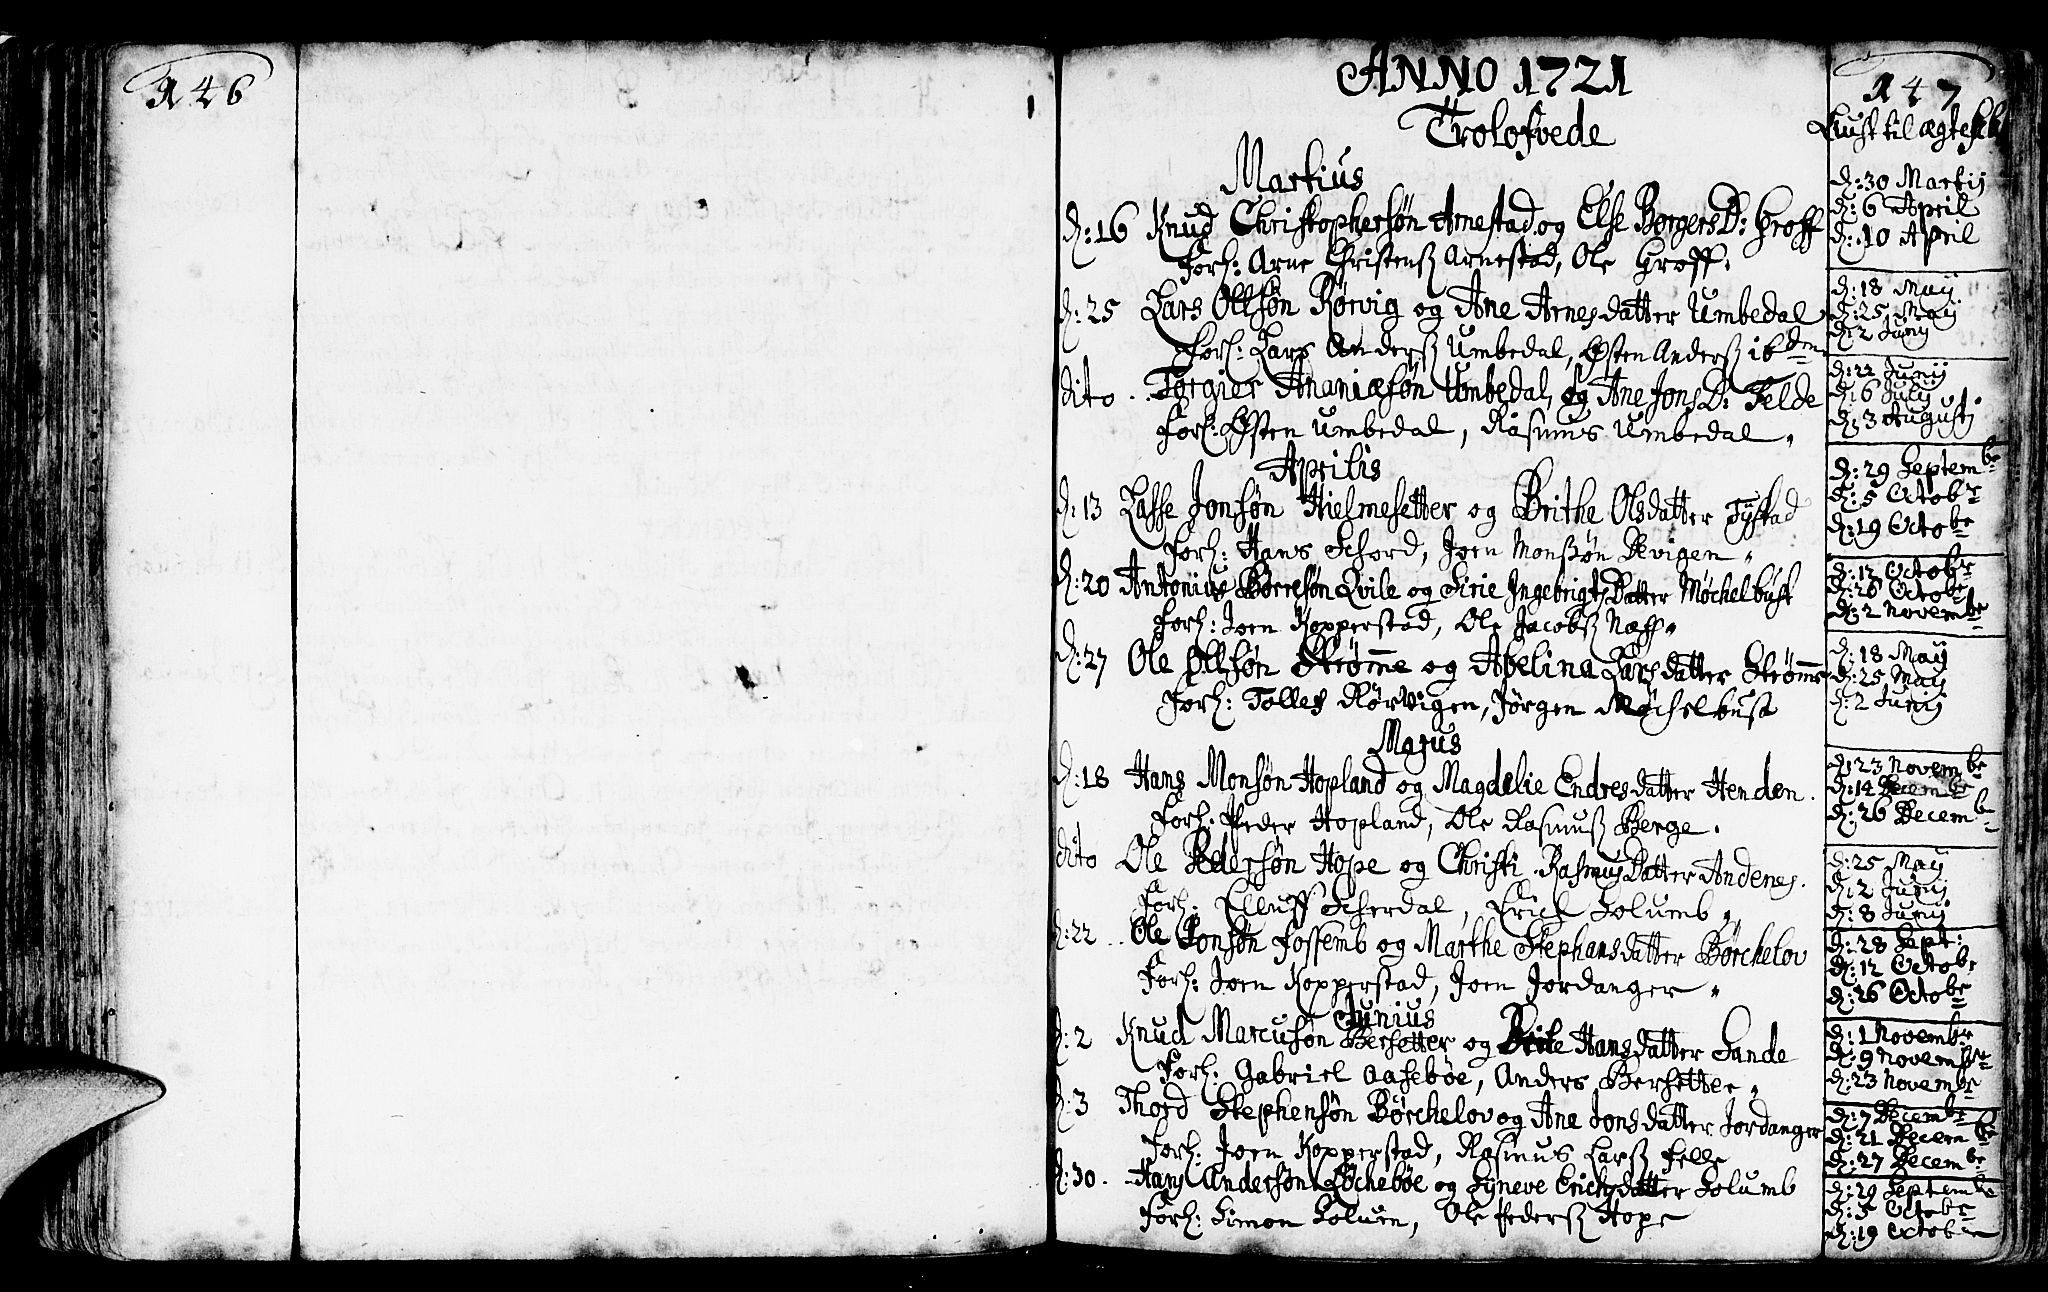 146
ANNO 1721
147
Trolofvede
Liust til ægtesk
Martius
d: 16 Knud Christophersøn Arnestad og Else Borgers D: Groff
Forl: Arne Christenß Arnestad, Ole Groff.
d: 30 Martij
d: 6 April
d: 10 April
d: 25 Lars Ollsøn Rørvig og Ane Arnesdatter Umbedal
Forl: Lars Anderß Umbedal, Østen Anderß ibdem
d: 18 Maij
d: 25 Maij
d: 2 Junij
dito. Torgier Ananiæsøn Umbedal, og Ane Jons D: Felde
Forl: Østen Umbedal, Rasmus Umbedal.
d: 22 Junij
d: 6 July
d: 3 Augusti
Aprilis
d: 13 Lasse Jonsøn Hielmesetter og Brithe Olsdatter Tystad
Forl: Hans Schord, Joen Monßøn Devigen.
d: 29 Septembe
d: 5 Octobr
d: 19 Octobe
d: 20 Antonius Børresøn Qvile og Sirie Ingebrigts Datter Møchelbust
Forl: Joen Kopperstad, Ole Jacobß Næss.
d: 12 Octobr
d: 26 Octobe
d: 2 Novembe
d: 27 Ole Ollsøn Strømme og Abelina Larsdatter Strømme
Forl: Tolles Rørvigen, Jørgen Møchelbust
d: 18 Maij
d: 25 Maij
d: 2 Junij
Majus
d: 18 Hans Monsøn Hopland og Magdelie Endresdatter Henden.
Forl: Peder Hopland, Ole Rasmuß Berge.
d: 23 Novembe
d: 14 Decembe
d: 26 Decembe
dito Ole Pedersøn Hope og Christi Rasmus Datter Andenes.
Forl: Elluff Scherdal, Erich Solumb.
d: 25 Maij
d: 2 Junij
d: 8 Junij
d: 22.. Ole Jonsøn Fossemb og Marthe Stephansdatter Børchelov
Forl: Joen Kopperstad, Joen Jordanger.
d: 28 Sept:
d: 12 Octobr
d: 26 Octobe
Junius
d: 2 Knud Marcusøn Bersetter og Brite Hansdatter Sande
Forl: Gabriel Aasebøe, Anders Bersetter.
d: 1 Novembr
d: 9 Novembr
d: 23 Novembe
d: 3 Thord Stephensøn Børchelov og Ane Jonsdatter Jordanger
Forl: Joen Kopperstad, Rasmus Larß Felle
d: 7 Decembr
d: 21 Decembe
d: 27 Decembe
d: 30. Hans Andersøn Løchebøe og Syneve Erichsdatter Solumb
Forl: Simon Solven, Ole Pederß Hope
d: 29 Septembe
d: 5 Octobe
d: 19 Octobe